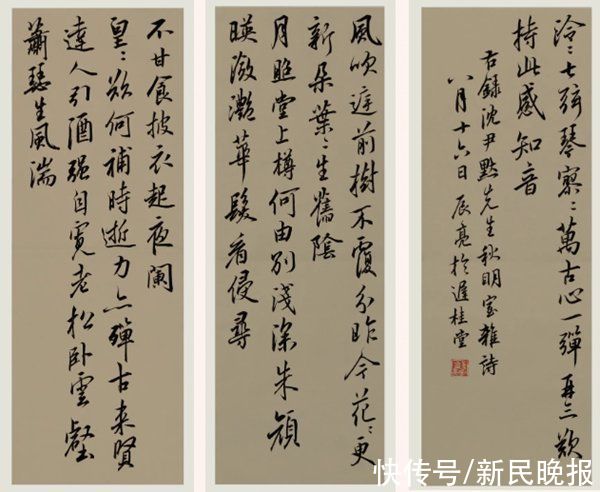 不甘食披衣起夜阑
皇〻欲何補時逝力亦殫古来賢
達人引酒强自寬老松卧雲壑
蕭瑟生風湍
風吹庭前樹不覆分昨今花〻更
新朵葉〻生舊陰
月照堂上樽何由別淺深朱顏
暎瀲灩華髮看侵尋
泠〻七弦琴寥〻萬古心一彈再三歎
持此感知音
右錄沈尹默先生秋明室雜詩
八月十六日辰亮於遲桂堂
快传号/新民晚报